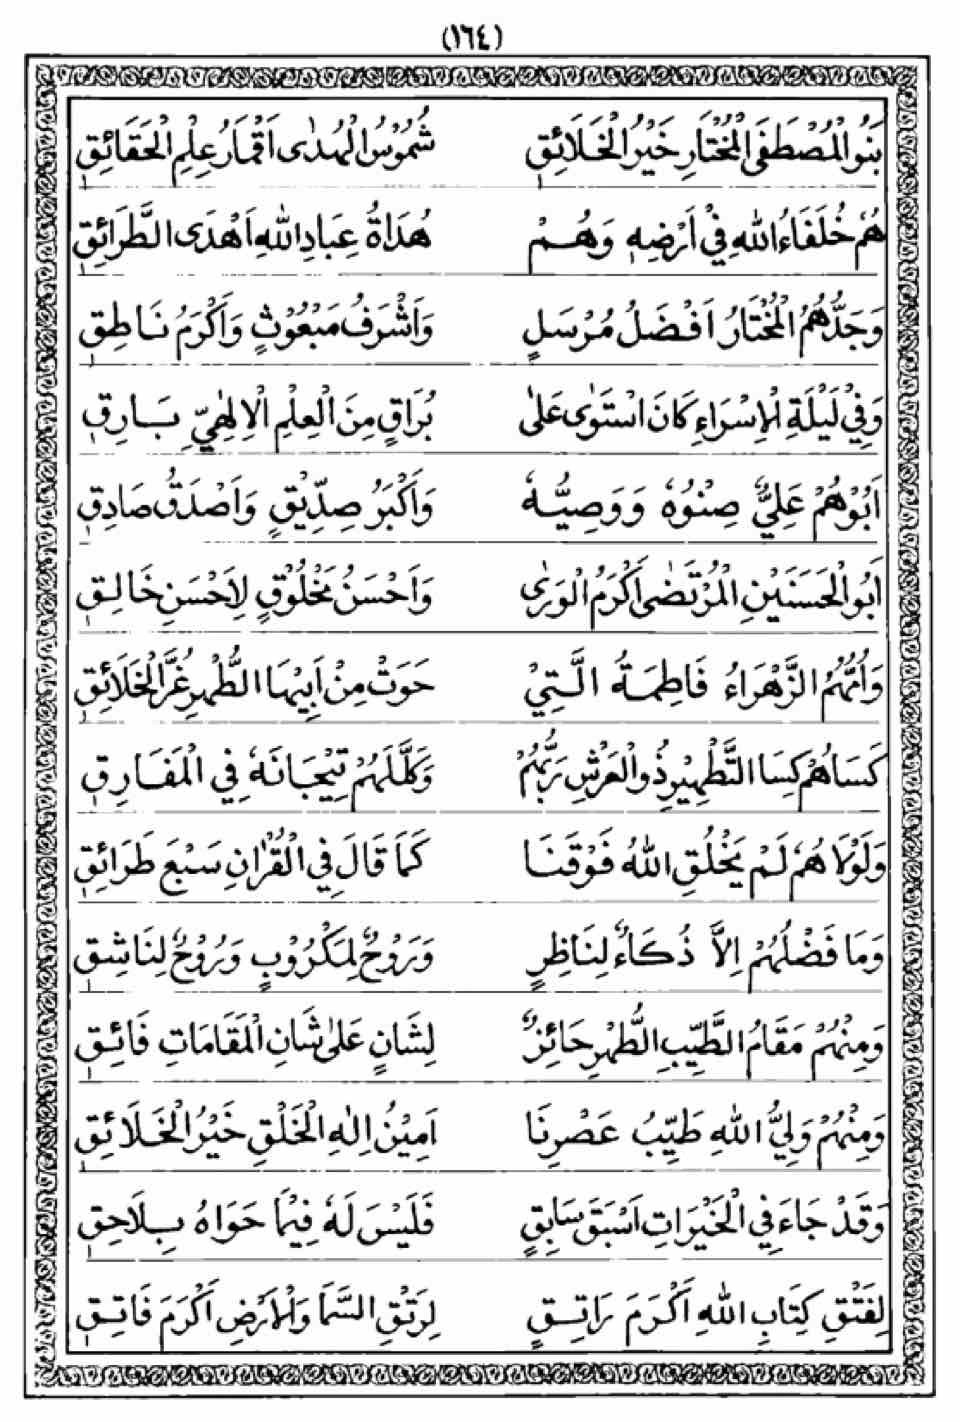 (١٦٤)
بَنُو الْمُصْطَفَى الْمُخْتَارِ خَيْرُ الْخَلَائِقِ شُمُوْسُ الْهُدٰى اَقْمَارُ عِلْمِ الْحَقَائِقِ
هُمْ خُلَفَاءُ اللهِ فِيْ اَرْضِهٖ وَهُمْ هُدَاةُ عِبَادِ اللهِ اَهْدَى الطَّرَائِقِ
وَجَدُّهُمُ الْمُخْتَارُ اَفْضَلُ مُرْسَلٍ وَاَشْرَفُ مَبْعُوْثٍ وَاَكْرَمُ نَاطِقِ
وَفِيْ لَيْلَةِ الْاِسْرَاءِ كَانَ اسْتَوٰى عَلٰى بُرَاقٍ مِنَ الْعِلْمِ الْاِلٰهِيِّ بَارِقِ
اَبُوْهُمْ عَلِيٌّ صِنْوُهٗ وَوَصِيُّهٗ وَاَكْبَرُ صِدِّيْقٍ وَاَصْدَقُ صَادِقِ
اَبُو الْحَسَنَيْنِ الْمُرْتَضٰى اَكْرَمُ الْوَرٰى وَاَحْسَنُ مَخْلُوْقٍ لِاَحْسَنِ خَالِقِ
وَاُمُّهُمُ الزَّهْرَاءُ فَاطِمَةُ الَّتِيْ حَوَتْ مِنْ اَبِيْهَا الطُّهْرِ غُرَّ الْخَلَائِقِ
كَسَاهُمْ كِسَا التَّطْهِيْرِ ذُو الْعَرْشِ رَبُّهُمْ وَكَلَّلَهُمْ تِيْجَانَهٗ فِي الْمَفَارِقِ
وَلَوْلَا هُمْ لَمْ يَخْلُقِ اللهُ فَوْقَنَا كَمَا قَالَ فِي الْقُرْاٰنِ سَبْعَ طَرَائِقِ
وَمَا فَضْلُهُمْ اِلَّا ذُكَاءٌ لِنَاظِرٍ وَرَوْحٌ لِمَكْرُوْبٍ وَرُوْحٌ لِنَاشِقِ
وَمِنْهُمْ مَقَامُ الطَّيِّبِ الطُّهْرِ حَائِزٌ لِشَانٍ عَلٰى شَانِ الْمَقَامَاتِ فَائِقِ
وَمِنْهُمْ وَلِيُّ اللهِ طَيِّبُ عَصْرِنَا اَمِيْنُ اِلٰهِ الْخَلْقِ خَيْرُ الْخَلَائِقِ
وَقَدْ جَاءَ فِي الْخَيْرَاتِ اَسْبَقَ سَابِقٍ فَلَيْسَ لَهٗ فِيْمَا حَوَاهُ بِلَاحِقِ
لِفَتْقِ كِتَابِ اللهِ اَكْرَمَ رَاتِقٍ لِرَتْقِ السَّمَا وَالْاَرْضِ اَكْرَمَ فَاتِقِ